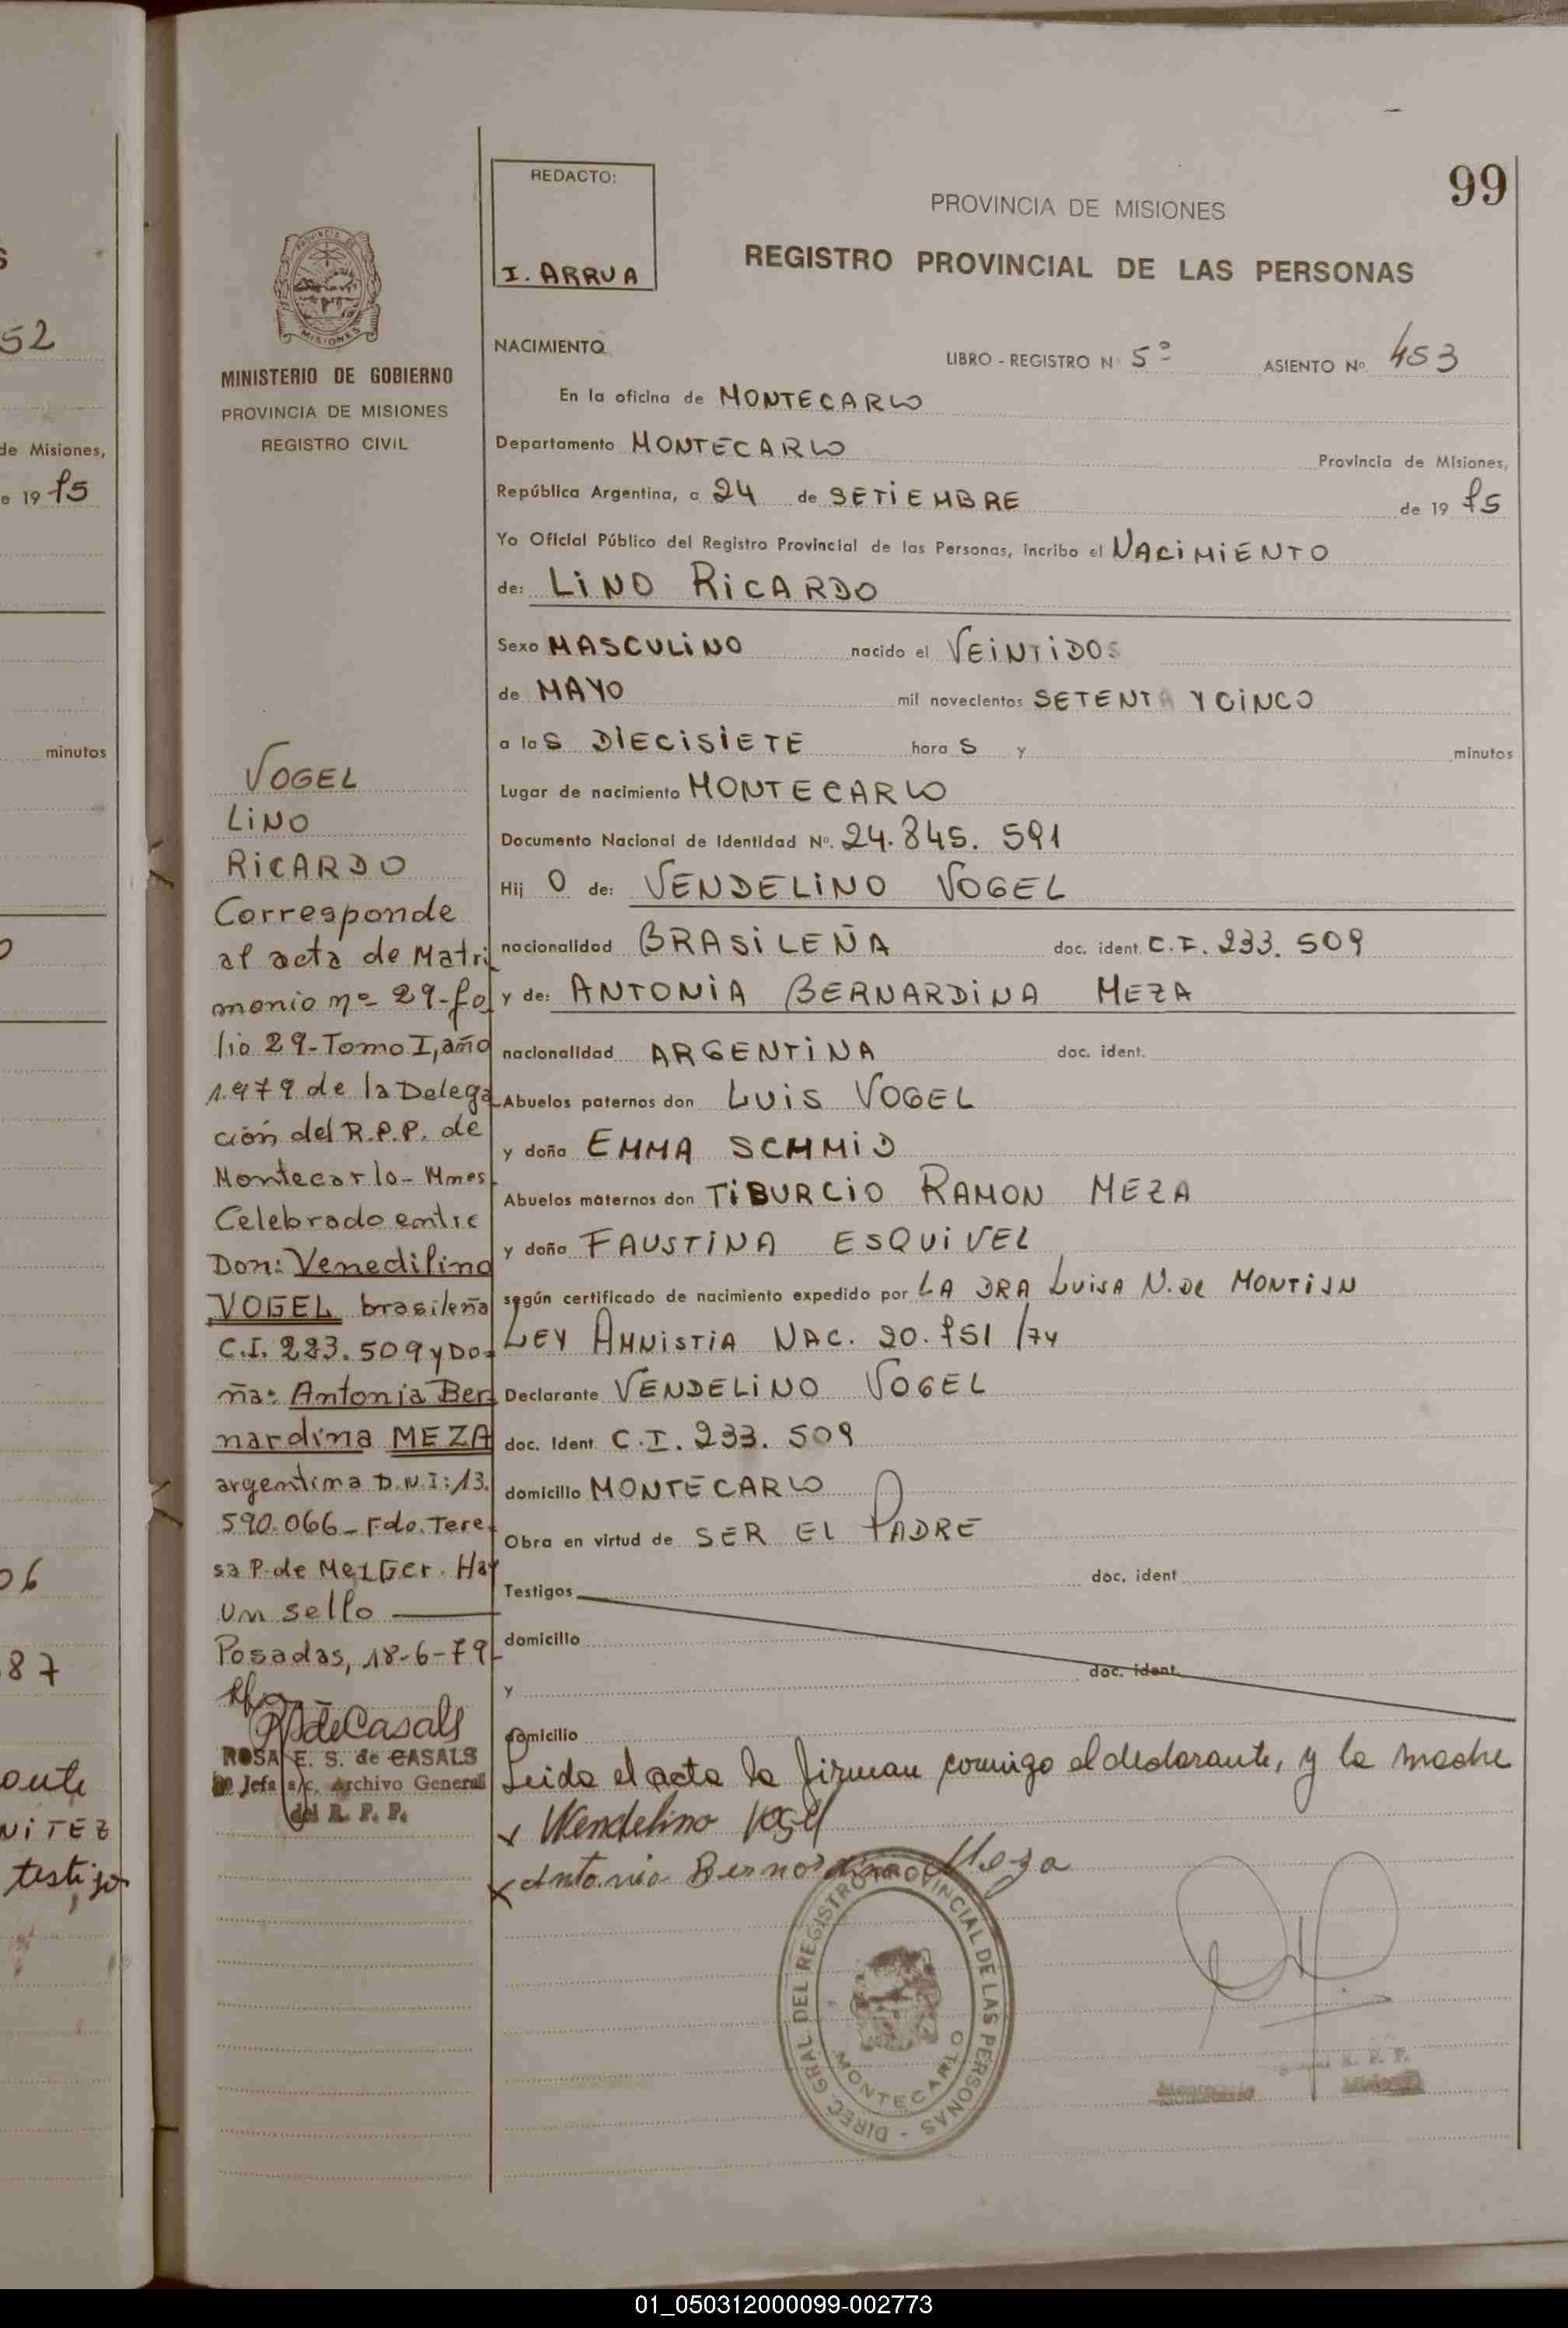 S
52
de Misiones,
e 19 75
minutos
O
06
87
NITEZ
testigo
99
REDACTO:
I. ARRUA
PROVINCIA DE MISIONES
REGISTRO PROVINCIAL DE LAS PERSONAS
PROVINCIA DE
MISIONES
MINISTERIO DE GOBIERNO
PROVINCIA DE MISIONES
REGISTRO CIVIL
VOGEL
LINO
RICARDO
Corresponde
al acta de Matri
monio nº 29-fo
lio 29-Tomo I, año
1.979 de la Delega
ción del R.P.P. de
Montecarlo-Mnes.
Celebrado entre
Don: Venedilino
VOGEL brasileña
C.I. 223.509 y Do-
ña: Antonia Ber
nardina MEZA
argentina D.N.I: 13.
590.066-Fdo. Tere-
sa P. de Mezger. Hay
un sello
Posadas, 18-6-79-
ROSA E. S. de CASALS
Jefa a/c. Archivo General
del R. P. P.
NACIMIENTO
LIBRO - REGISTRO Nº 5º ASIENTO Nº 453
En la oficina de MONTECARLO
Departamento MONTECARLO Provincia de Misiones,
República Argentina, a 24 de SETIEMBRE de 19 75
Yo Oficial Público del Registro Provincial de las Personas, incribo el NACIMIENTO
de: LINO RICARDO
Sexo MASCULINO nacido el VEINTIDOS
de MAYO mil novecientos SETENTA Y CINCO
a las DIECISIETE hora S y minutos
Lugar de nacimiento MONTECARLO
Documento Nacional de Identidad Nº. 24.845.591
Hij O de: VENDELINO VOGEL
nacionalidad BRASILEÑA doc. ident. C.I. 233.509
y de: ANTONIA BERNARDINA MEZA
nacionalidad ARGENTINA doc. ident.
Abuelos paternos don LUIS VOGEL
y doña EMMA SCHMID
Abuelos maternos don TIBURCIO RAMON MEZA
y doña FAUSTINA ESQUIVEL
según certificado de nacimiento expedido por LA DRA LUISA N. DE
LEY AMNISTIA NAC. 20.751/74
Declarante VENDELINO VOGEL
doc. Ident. C.I. 233.509
domicilio MONTECARLO
Obra en virtud de SER EL PADRE
Testigos doc. ident
domicilio
y doc. ident.
domicilio
Leida el acta la firman conmigo el declarante, y la madre
x Wendelino Vogel
x Antonia Bernardina Meza
DIREC. GRAL DEL REGISTRO PROVINCIAL DE LAS PERSONAS -
MONTECARLO
01_050312000099-002773